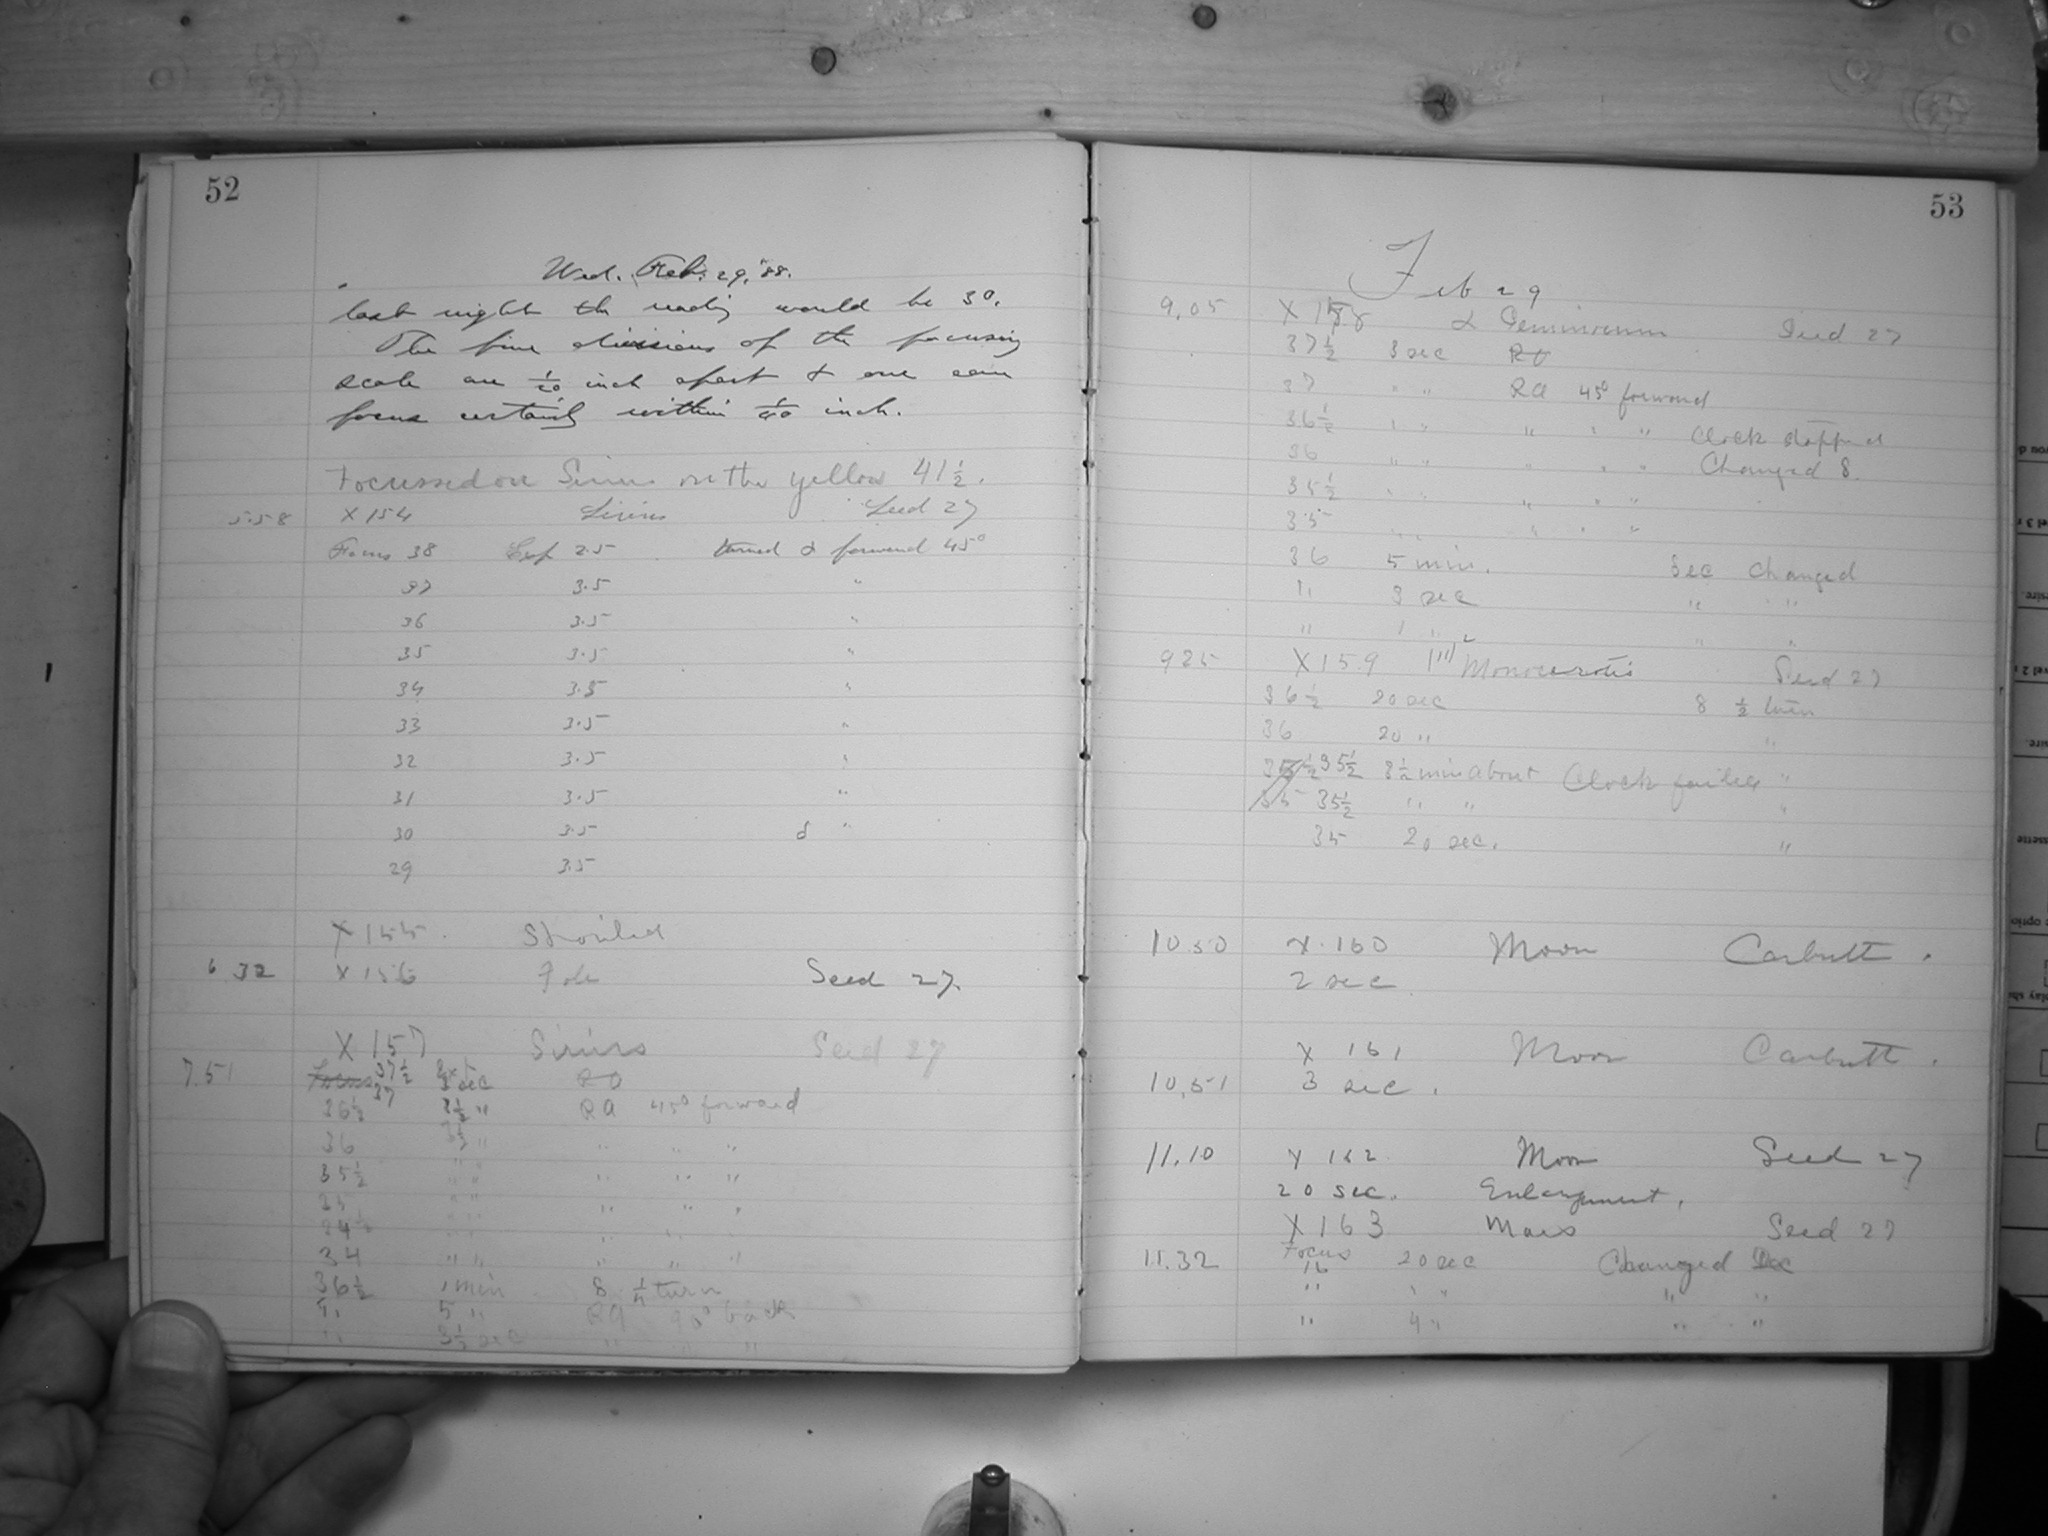 52
Wed. Feb. 29, '88.
last night the reading would be 30.
The fine divisions of the focusing
scale are 1/20 inch apart & one can
focus certainly within 1/40 inch.
Focussed on Sirius on the yellow 41 1/2.
5.58 X 154 Sirius Seed 27
Focus 38 Exp 2.5 turned α forward 45°
37 3.5 "
36 3.5 "
35 3.5 "
34 3.5 "
33 3.5 "
32 3.5 "
31 3.5 "
30 3.5 δ "
29 3.5
X 155. Spoiled
6 32 X 156 Pole Seed 27.
X 157 Sirius Seed 27
7.51 Focus 37 1/2 Ext 3 sec RA
37
36 1/2 3 1/2 " RA 45° forward
36 3 1/2 " " " "
35 1/2 " " " " "
35 " " " " "
34 1/2 " " " " "
34 " " " " "
36 1/2 1 min δ 1/4 turn
" 5 " RA 90° back
" 3 1/2 sec " " "
53
Feb 29
9.05 X 158 α Geminorum Seed 27
37 1/2 3 sec RA
37 " " RA 45° forward
36 1/2 " " " " " Clock stopped
36 " " " " " Changed δ.
35 1/2 " " " " "
35 " " " " "
36 5 min. Dec changed
" 3 sec " "
" " " " "
9 25 X 159 Monocerotis Seed 27
36 1/2 20 sec δ 1/2 turn
36 20 " "
35 1/2 35 1/2 3 1/2 min about Clock failed "
35 35 1/2 " " "
35 20 sec. "
10 50 X. 160 Moon Carbutt.
2 sec
X 161 Moon Carbutt.
10.51 3 sec.
11.10 X 162 Moon Seed 27
20 sec. Enlargement.
X 163 Mars Seed 27
11.32 Focus 16 20 sec Changed Dec
" " " " "
" 4 " " "